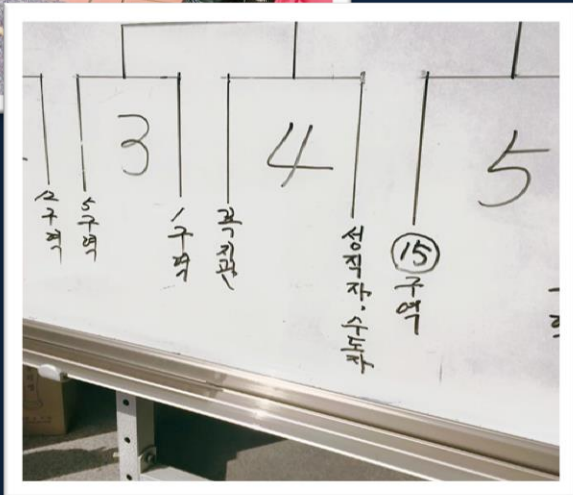 3
4
5
2구역
5구역
1구역
꼭지관
성직자·수도자
15구역